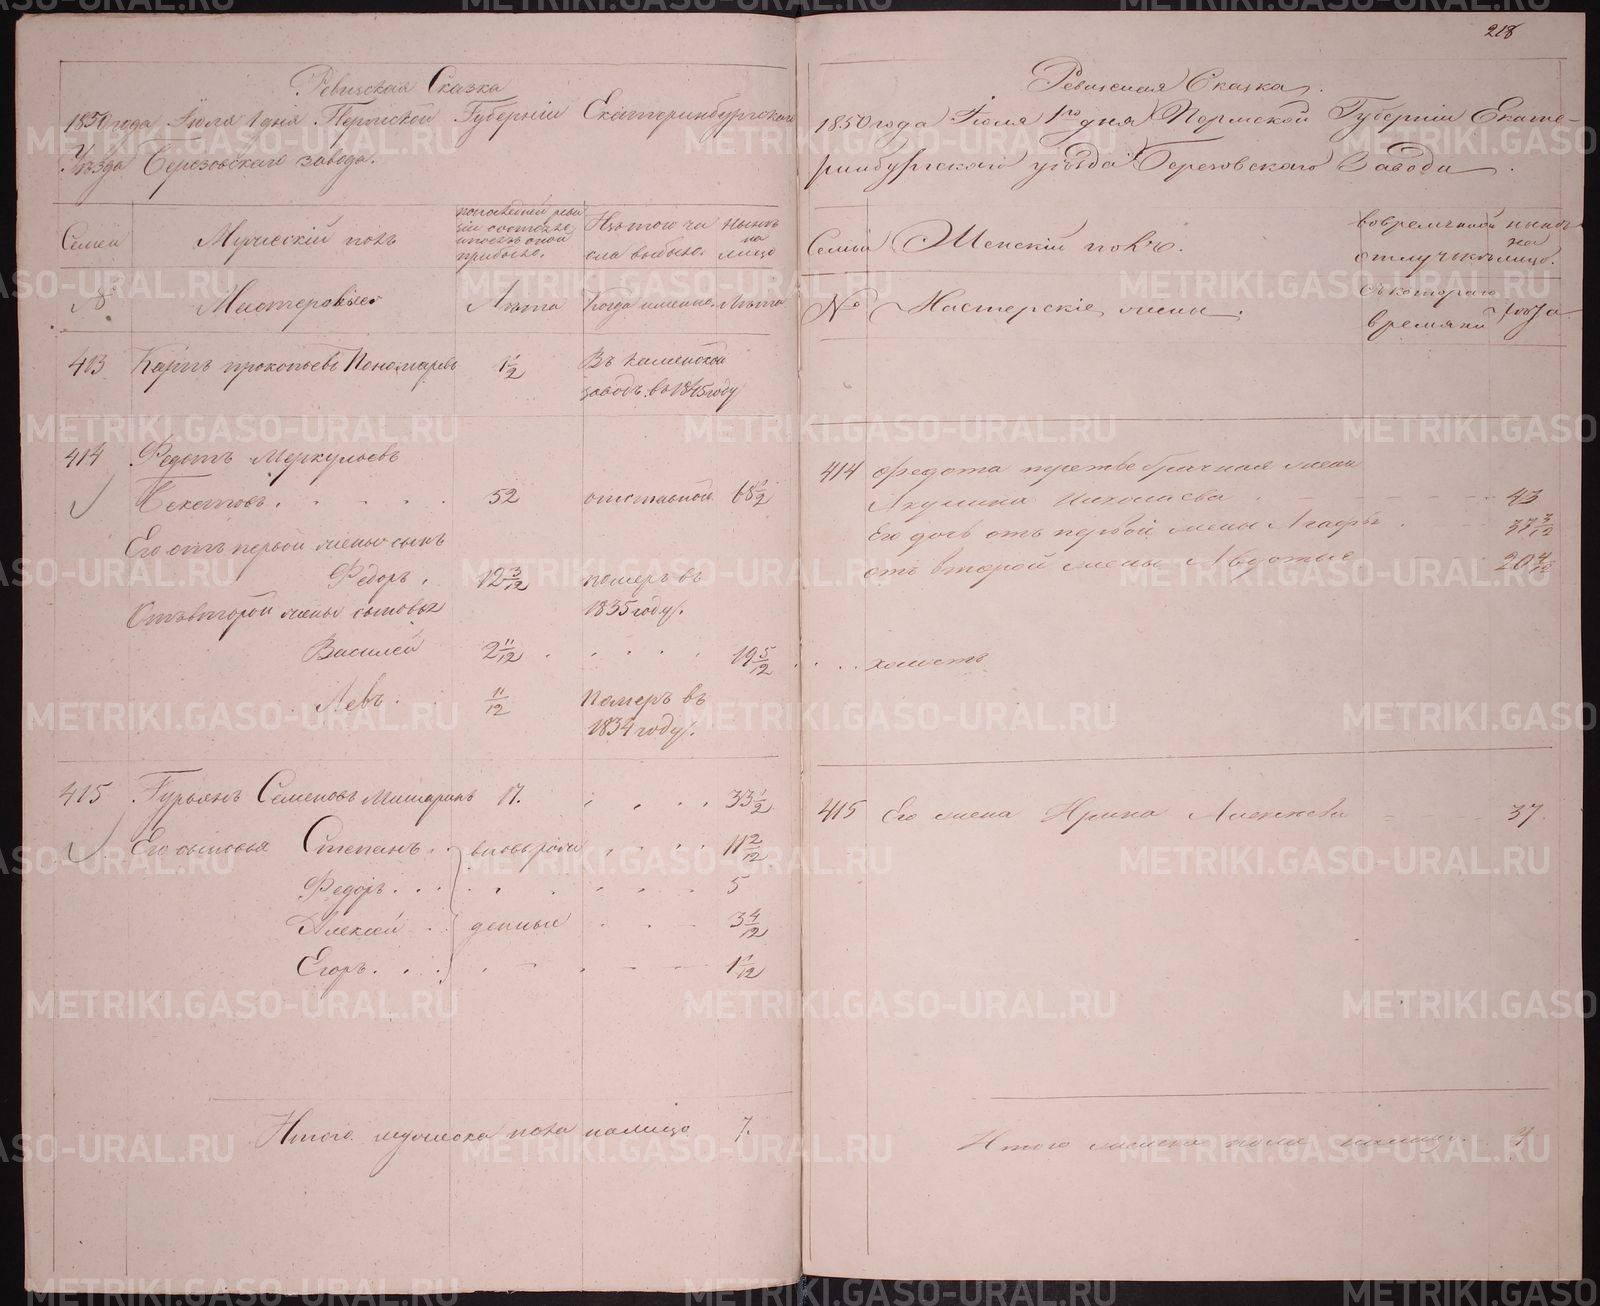 218
Ревизская Сказка
1850 года Іюля 1 дня Пермской Губерніи Екатеринбургскаго
Уѣзда Березовскаго завода.
Семьи
Мужескій полъ
по последней реви
зіи состояло
и после оной
прибыло.
Изъ того чи
сла выбыло.
Нынѣ
на
лицо
№
Мастеровые
Лѣта
Когда именно.
Лѣта
413 Карпъ прокопьевъ Пономаревъ 1 1/2 Въ каменской
заводъ въ 1845 году
414 Федотъ Меркульевъ
Бекетовъ. 52 отставной 68 1/2
Его отъ первой жены сынъ
Федоръ. 12 3/12 померъ въ
1835 году.
Отъ второй жены сыновья
Василей 2 11/12 19 5/12
Левъ. 11/12 Померъ въ
1834 году.
415 Гурьянъ Семеновъ Мишаринъ 17. 33 1/2
Его сыновья Степанъ вновь рож 11 2/12
Федоръ 5
Алексей денные 3 4/12
Егоръ 1 1/12
Итого мужеска пола налицо 7.
Ревизская Сказка.
1850 года Іюля 1го дня Пермской Губерніи Екате-
ринбургскаго уѣзда Березовскаго Завода
Семьи
Женскій полъ.
во временной
отлучкѣ
нынѣ
на
лицо.
№
Мастерскіе жены.
съ котораго
времяни
года
414 Федота третьебрачная жена
Акулина Николаева 43
Его дочь отъ первой жены Агафья 37 3/12
отъ второй жены Авдотья 20 4/12
холостъ
415 Его жена Ирина Алексеева 37.
Итого женска пола налицо. 4
METRIKI.GASO-URAL.RU